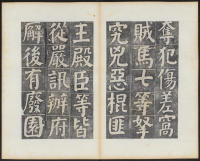 奪犯傷差窩
賊馬士等拏
究兇惡棍匪
王殿臣等皆
從嚴訊辦府
廨後有廢園